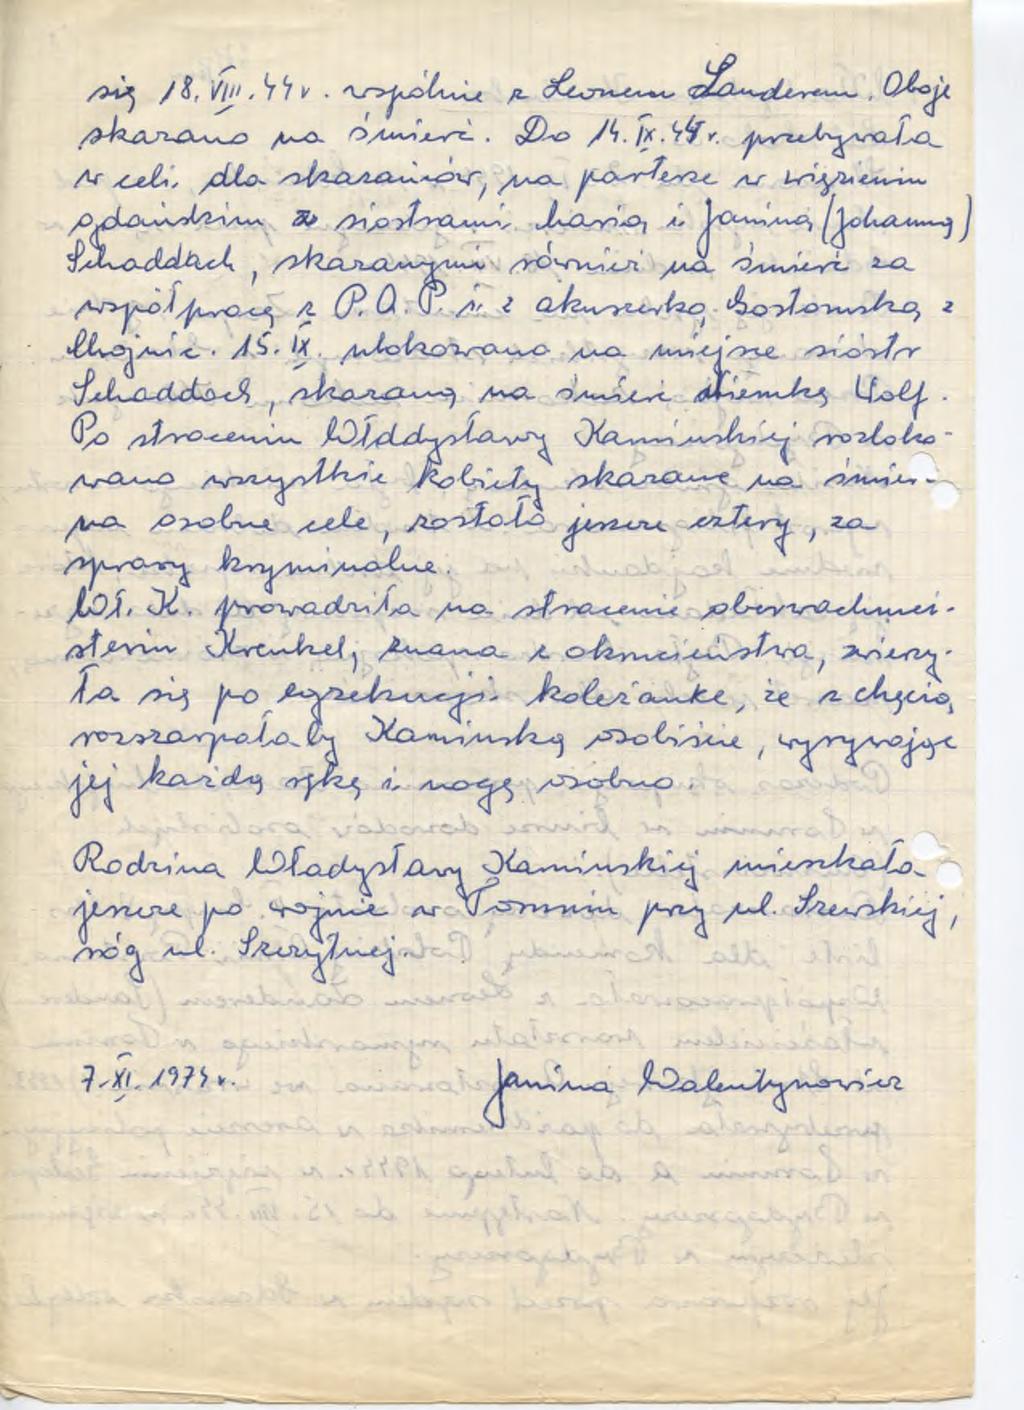 się 18.VIII.44r. wspólnie z Leonem Landerem. Oboje
skazano na śmierć. Do 14.IX.44r. przebywała
w celi, dla skazańców, na parterze w więzieniu
gdańskim z siostrami Marią i Janiną (Johanną)
Schaddach, skazanymi również na śmierć za
współpracę z P.A.P. i z akuszerką Gostomską z
Chojnic. 15.IX. ulokowano na miejsce sióstr
Schaddach, skazaną na śmierć Niemkę Wolf.
Po straceniu Władysławy Kamińskiej rozloko-
wano wszystkie kobiety skazane na śmierć
na osobne cele, zostało jeszcze cztery, za
sprawy kryminalne.
Wł. K. prowadziła na stracenie oberwachmei-
sterin Krenkel, znana z okrucieństwa, zwierzy-
ła się po egzekucji koleżance, że z chęcią
rozszarpałaby Kamińską osobiście, wyrywając
jej każdą rękę i nogę osobno.
Rodzina Władysławy Kamińskiej mieszkała
jeszcze po wojnie w Toruniu przy ul. Szewskiej,
róg ul. Szczytnej.
7.XI.1974r. Janina Walentynowicz